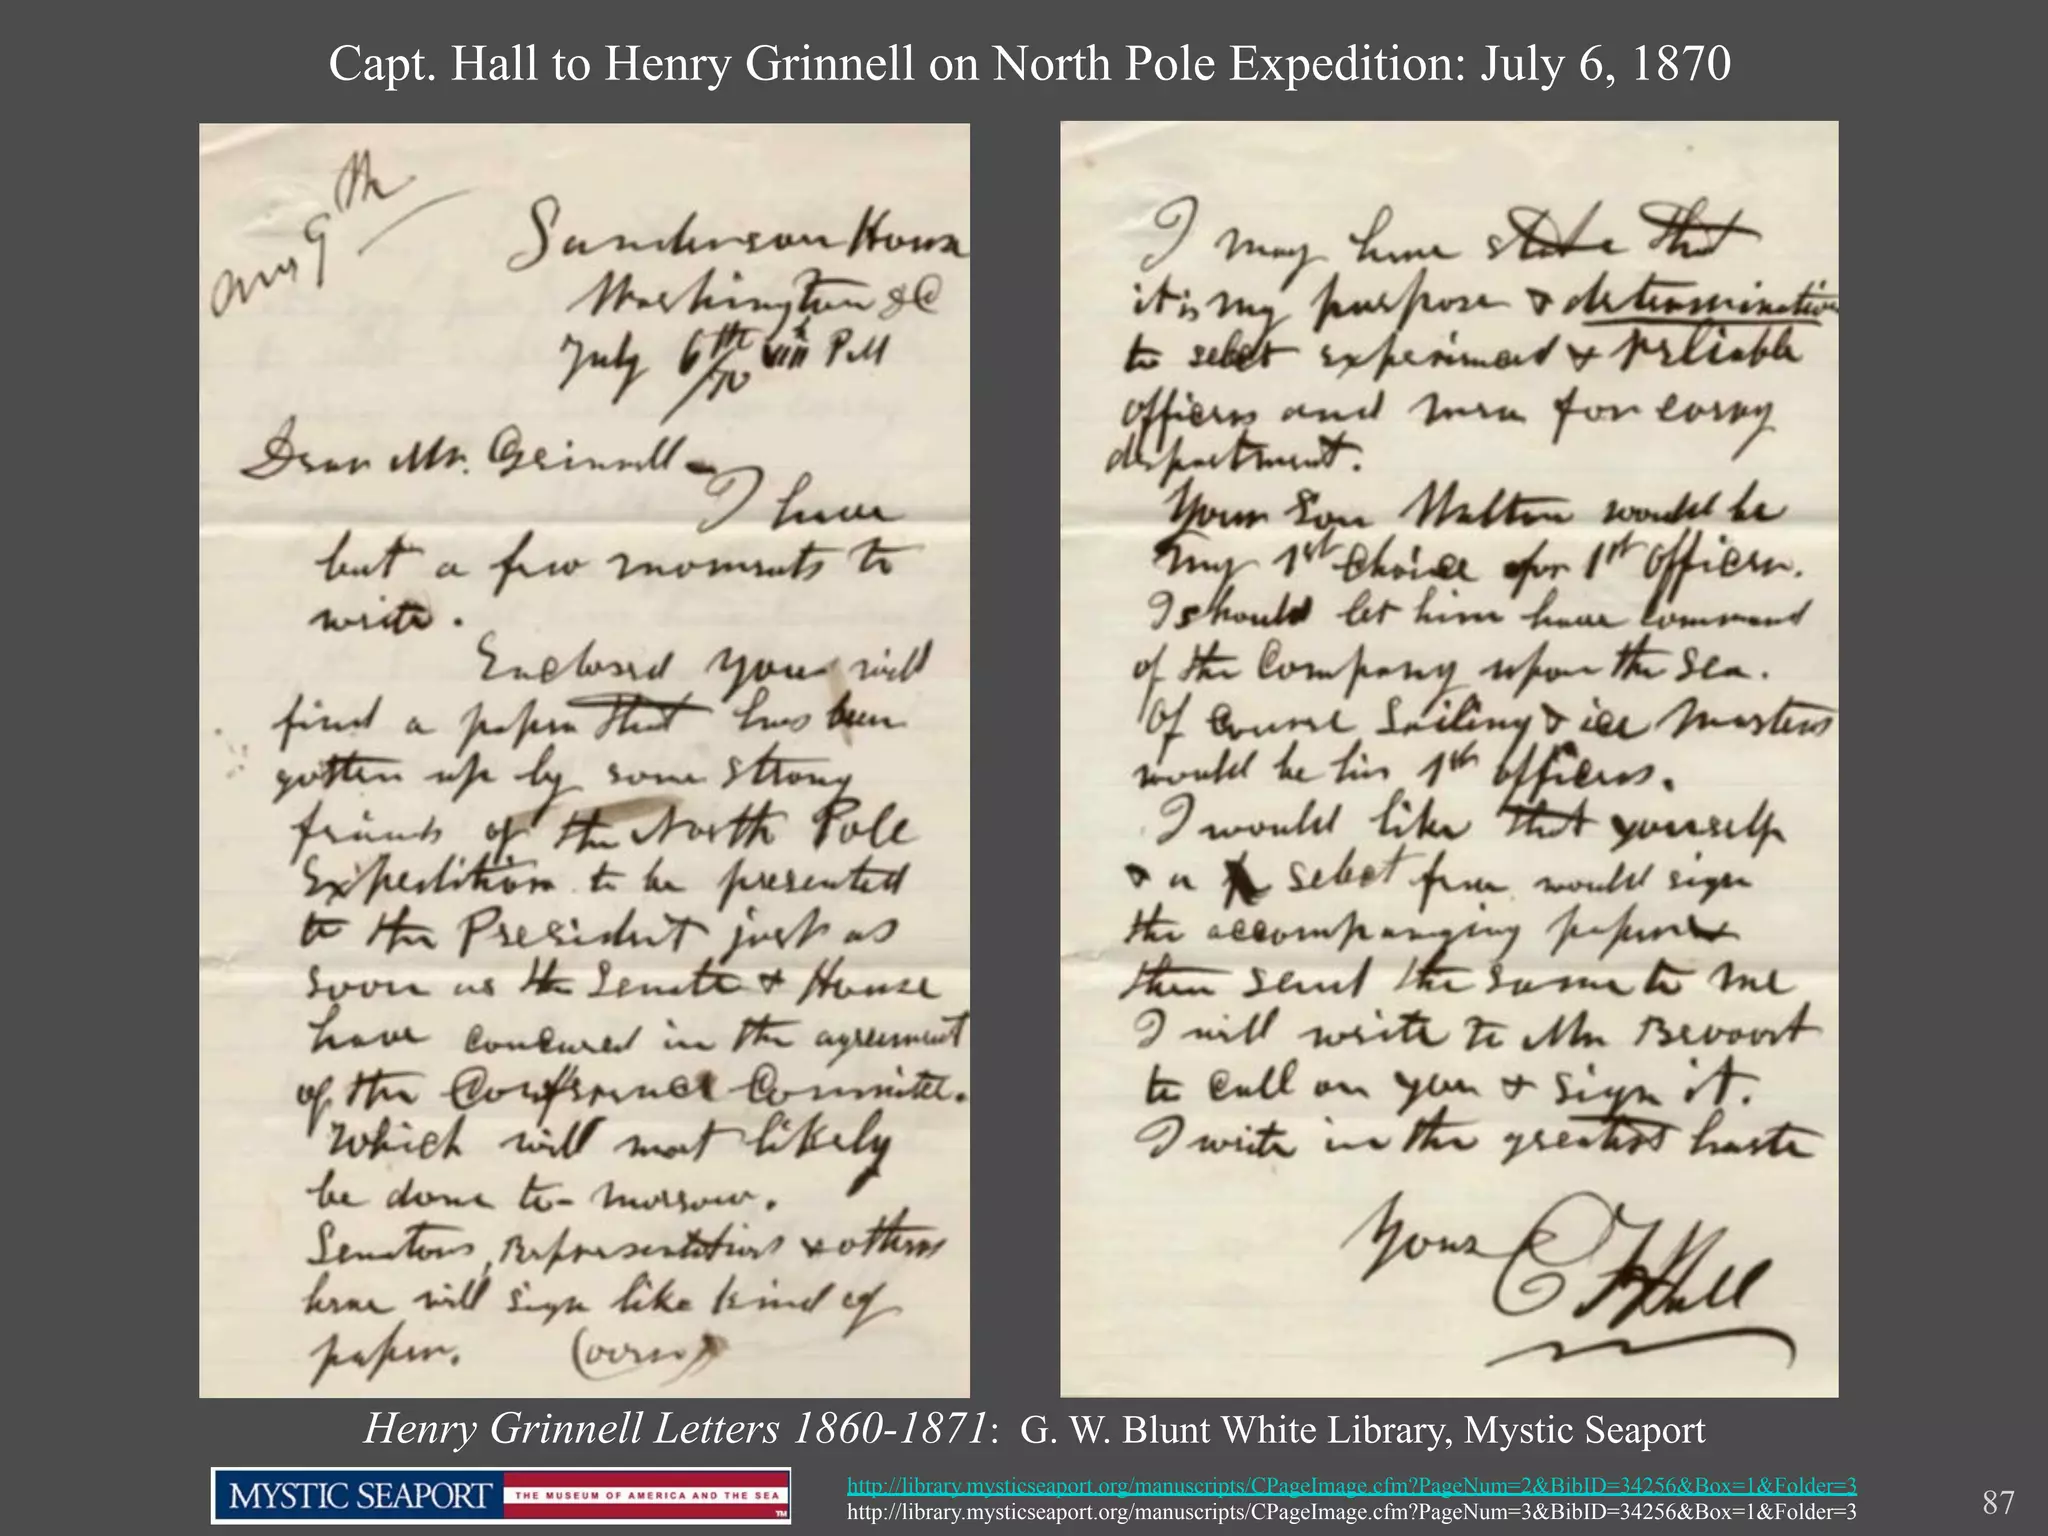 Capt. Hall to Henry Grinnell on North Pole Expedition: July 6, 1870
Ans 9th
Sanderson House
Washington DC
July 6th/70 VIIIh PM
Dear Mr. Grinnell—
I have
but a few moments to
write.
Enclosed you will
find a paper that has been
gotten up by some strong
friends of the North Pole
Expedition to be presented
to the President just as
soon as the Senate & House
have concured in the agreement
of the Conference Committee.
Which will most likely
be done to-morrow.
Senators, Representatives & others
here will sign like kind of
paper. (over)
I may here state that
it is my purpose & determination
to select experienced & reliable
officers and men for every
department.
Your Son Walton would be
my 1st choice for 1st officer.
I should let him have command
of the Company upon the Sea.
Of course Sailing & ice Masters
would be his 1st officers.
I would like that yourself
& a select few would sign
the accompanying paper &
then send the same to me
I will write to Mr Brevoort
to call on you & sign it.
I write in the greatest haste
Yours C F Hall
Henry Grinnell Letters 1860-1871: G. W. Blunt White Library, Mystic Seaport
MYSTIC SEAPORT THE MUSEUM OF AMERICA AND THE SEA™
http://library.mysticseaport.org/manuscripts/CPageImage.cfm?PageNum=2&BibID=34256&Box=1&Folder=3
http://library.mysticseaport.org/manuscripts/CPageImage.cfm?PageNum=3&BibID=34256&Box=1&Folder=3
87